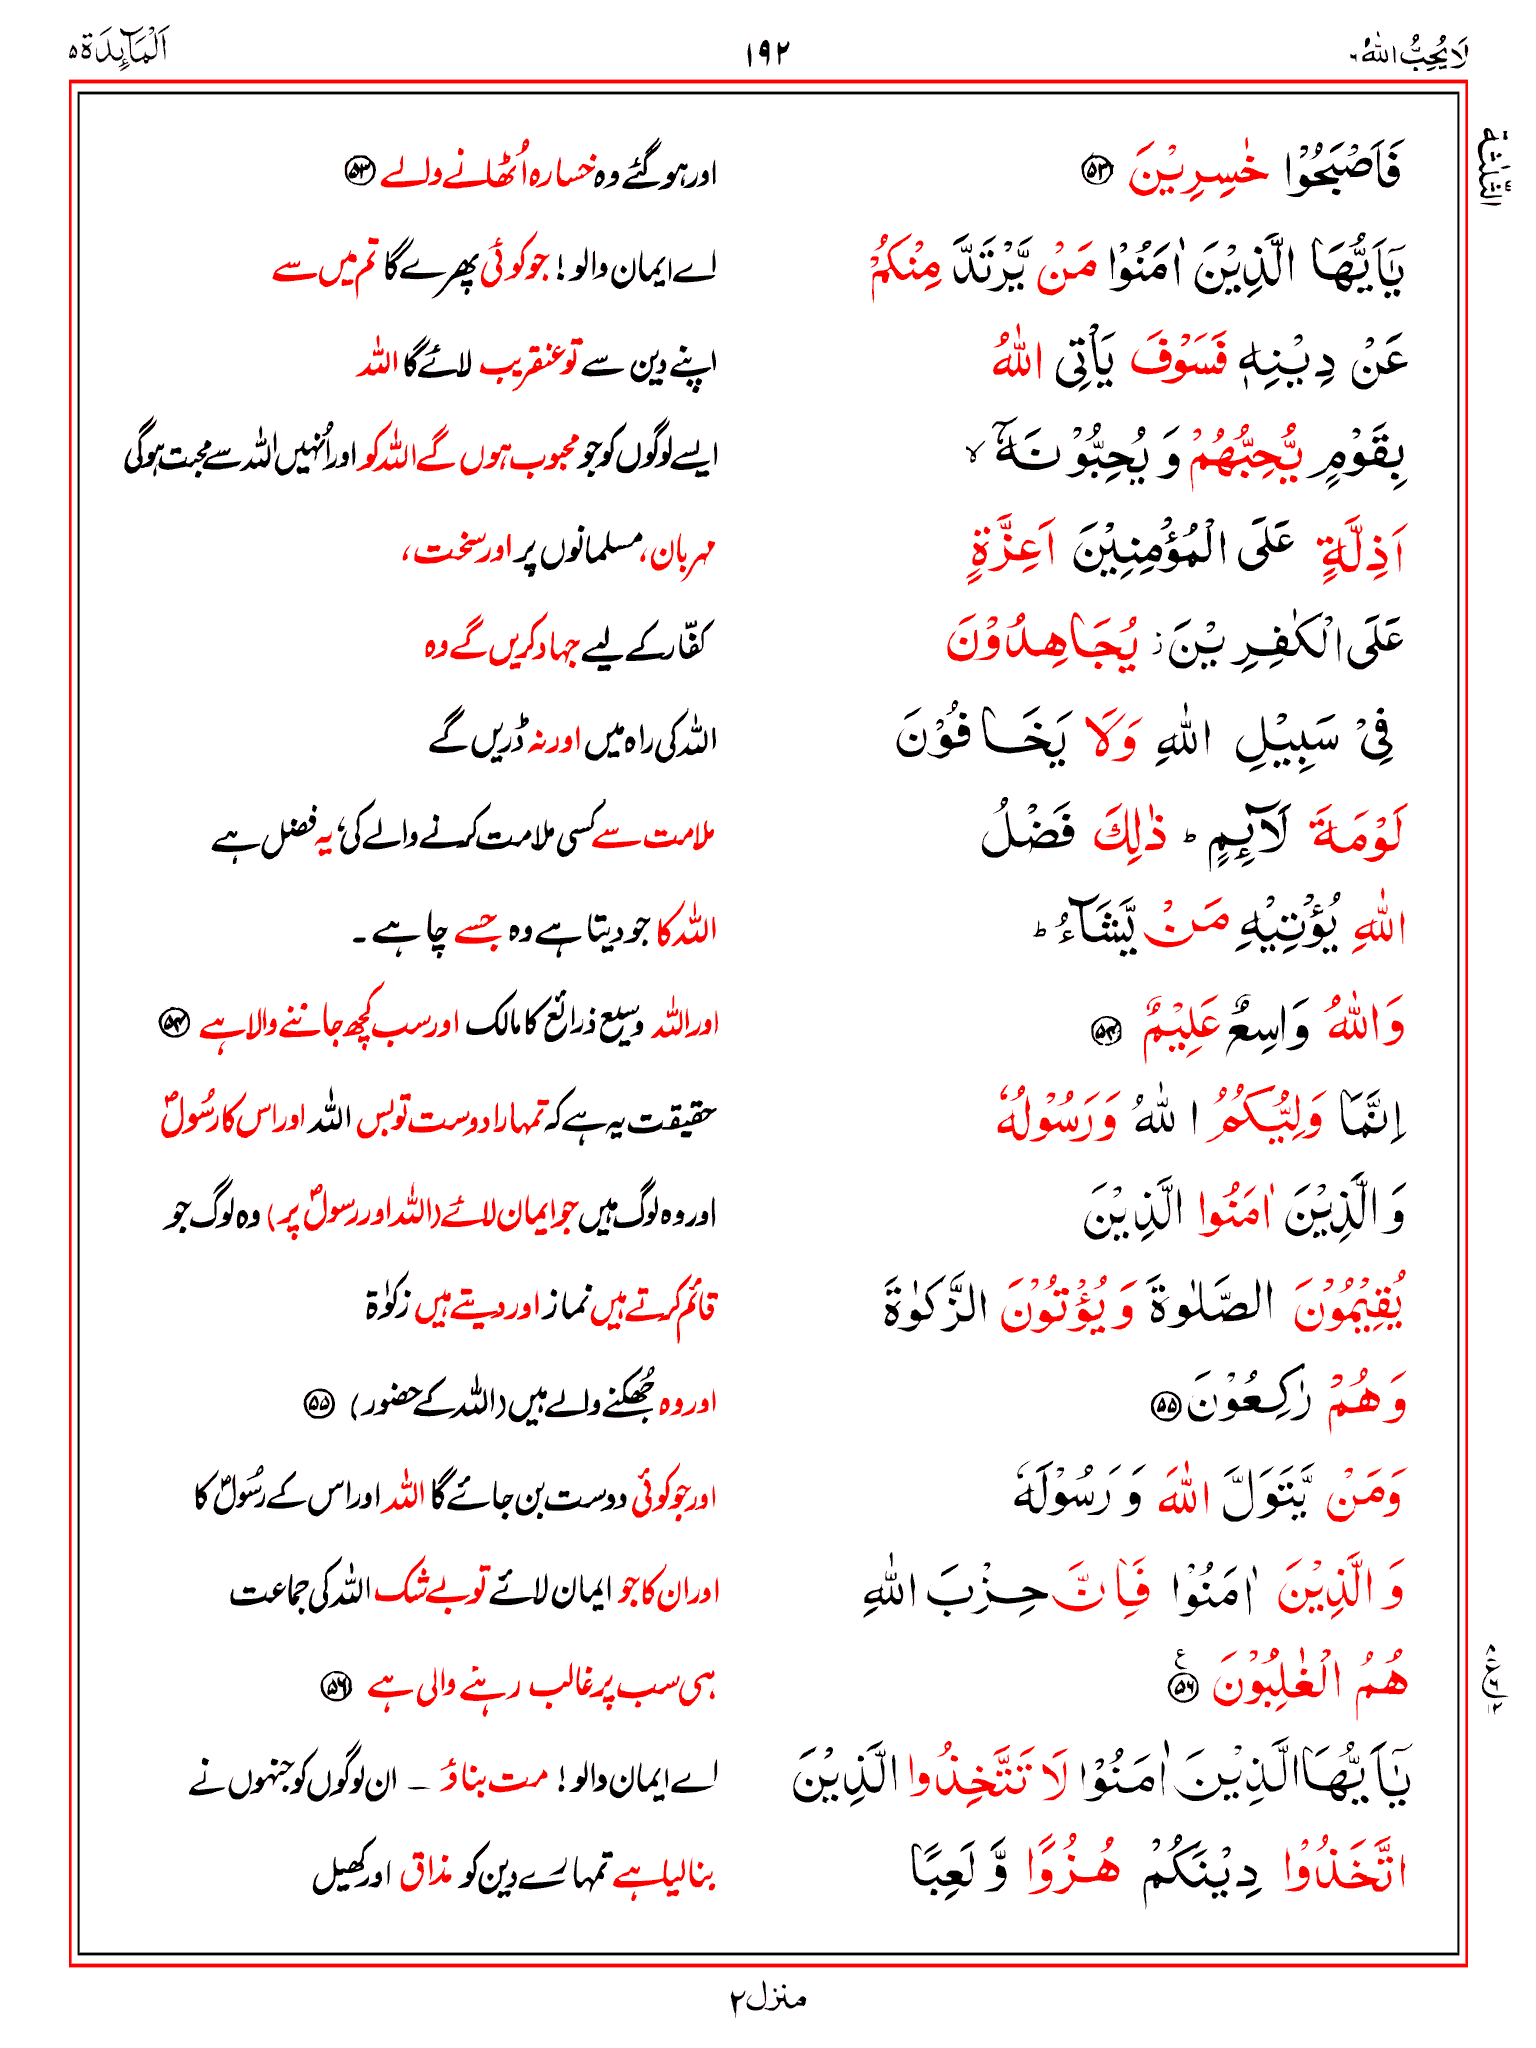 لَا یُحِبُّ اللہُ ۶ ۱۹۲ اَلْمَآئِدَۃ ۵
الثلٰثۃ
فَاَصْبَحُوْا خٰسِرِیْنَ ﴿۵۳﴾ اور ہو گئے وہ خسارہ اُٹھانے والے ﴿۵۳﴾
یٰۤاَیُّهَا الَّذِیْنَ اٰمَنُوْا مَنْ یَّرْتَدَّ مِنْكُمْ اے ایمان والو! جو کوئی پھرے گا تم میں سے
عَنْ دِیْنِهٖ فَسَوْفَ یَاْتِی اللّٰهُ اپنے دین سے تو عنقریب لائے گا اللہ
بِقَوْمٍ یُّحِبُّهُمْ وَ یُحِبُّوْنَهٗۤ ۙ ایسے لوگوں کو جو محبوب ہوں گے اللہ کو اور اُنہیں اللہ سے محبت ہوگی
اَذِلَّةٍ عَلَی الْمُؤْمِنِیْنَ اَعِزَّةٍ مہربان، مسلمانوں پر اور سخت،
عَلَی الْكٰفِرِیْنَ ؗ یُجَاهِدُوْنَ کفّار کے لیے جہاد کریں گے وہ
فِیْ سَبِیْلِ اللّٰهِ وَلَا یَخَافُوْنَ اللہ کی راہ میں اور نہ ڈریں گے
لَوْمَةَ لَآئِمٍ ؕ ذٰلِكَ فَضْلُ ملامت سے کسی ملامت کرنے والے کی، یہ فضل ہے
اللّٰهِ یُؤْتِیْهِ مَنْ یَّشَآءُ ؕ اللہ کا جو دیتا ہے وہ جسے چاہے ۔
وَاللّٰهُ وَاسِعٌ عَلِیْمٌ ﴿۵۴﴾ اور اللہ وسیع ذرائع کا مالک اور سب کچھ جاننے والا ہے ﴿۵۴﴾
اِنَّمَا وَلِیُّكُمُ اللّٰهُ وَرَسُوْلُهٗ حقیقت یہ ہے کہ تمہارا دوست تو بس اللہ اور اس کا رسُولؐ
وَالَّذِیْنَ اٰمَنُوا الَّذِیْنَ اور وہ لوگ ہیں جو ایمان لائے (اللہ اور رسولؐ پر) وہ لوگ جو
یُقِیْمُوْنَ الصَّلٰوةَ وَ یُؤْتُوْنَ الزَّكٰوةَ قائم کرتے ہیں نماز اور دیتے ہیں زکوٰۃ
وَهُمْ رٰكِعُوْنَ ﴿۵۵﴾ اور وہ جُھکنے والے ہیں (اللہ کے حضور) ﴿۵۵﴾
وَمَنْ یَّتَوَلَّ اللّٰهَ وَ رَسُوْلَهٗ اور جو کوئی دوست بن جائے گا اللہ اور اس کے رسُولؐ کا
وَالَّذِیْنَ اٰمَنُوْا فَاِنَّ حِزْبَ اللّٰهِ اور ان کا جو ایمان لائے تو بے شک اللہ کی جماعت
هُمُ الْغٰلِبُوْنَ ﴿۵۶﴾ ہی سب پر غالب رہنے والی ہے ﴿۵۶﴾
یٰۤاَیُّهَا الَّذِیْنَ اٰمَنُوْا لَا تَتَّخِذُوا الَّذِیْنَ اے ایمان والو! مت بناؤ ۔ ان لوگوں کو جنہوں نے
اتَّخَذُوْا دِیْنَكُمْ هُزُوًا وَّ لَعِبًا بنا لیا ہے تمہارے دین کو مذاق اور کھیل
منزل ۲